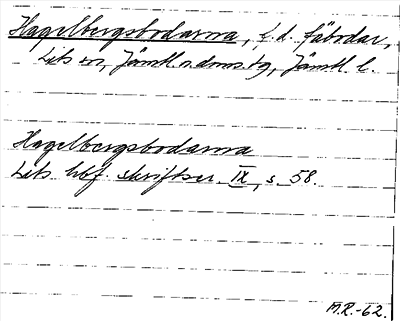 Hagelbergsbodarna, f.d. fäbodar,
Lits sn, Jämtl. n. doms. tg, Jämtl. l.
Hagelbergsbodarna
Lits hbf skriftser. IX, s 58.
M.R.-62.